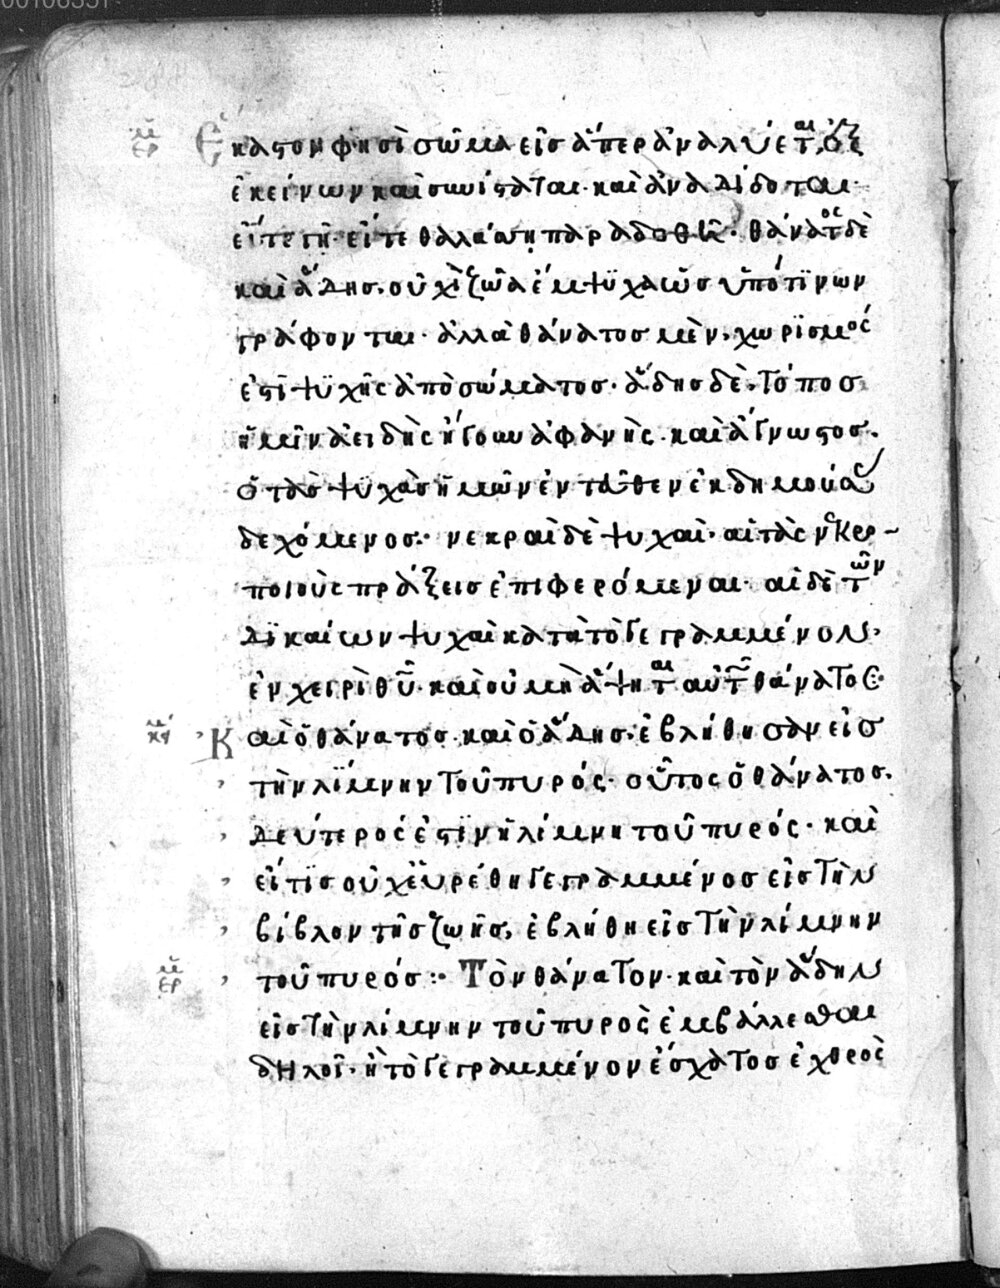 00106551
ἑρ Ἕκαστον φησὶ σῶμα εἰς ἅπερ ἀναλύεται, ἐξ
ἐκείνων καὶ συνίσταται· καὶ ἀναδίδοται·
εἴτε γῆ· εἴτε θαλάσση παραδοθῆ· θάνατος δὲ
καὶ ἅδης. οὐχὶ ζῶα ἔμψϋχα ὡς ὑπό τϊνων
γράφονται· ἀλλὰ θάνατος μὲν, χωρϊσμός
ἐστῒ ψϋχῆς ἀπὸ σώματος· ἅδης δὲ, τόπος
ἡμῖν ἀειδὴς ἤγουν ἀφανὴς· καὶ ἄγνωστος.
ὁ τὰς ψυχὰς ἡμῶν ἐντεῦθεν ἐκδημούσας
δεχόμενος· νεκραὶ δὲ ψυχαὶ· αἱ τὰς νεκρο
ποιοὺς πράξεις ἐπιφερόμεναι· αἱ δὲ τῶν
δϊκαίων ψυχαὶ κατὰ τὸ γεγραμμένον,
ἐν χειρὶ θῦ· καὶ οὐ μὴ ἅψηται αὐτῶν θάνατος·
κει Καὶ ὁ θάνατος· καὶ ὁ ἅδης· ἐβλήθησαν εἰς
τὴν λΐμνην τοῦ πυρός· οὗτος ὁ θάνατος.
δεύτερός ἐστϊν ἡ λίμνη τοῦ πυρός· καὶ
εἴ τϊς οὐχ εὑρέθη γεγραμμένος εἰς τὴν
βίβλον τῆς ζωῆς, ἐβλήθη εἰς τὴν λίμνην
ἑρ τοῦ πυρός:· Τὸν θάνατον· καὶ τὸν ἅδην
εἰς τὴν λίμνην τοῦ πυρὸς ἐμβάλλεσθαι
δηλοῖ· ἢ τὸ γεγραμμένον ἔσχατος ἐχθρὸς